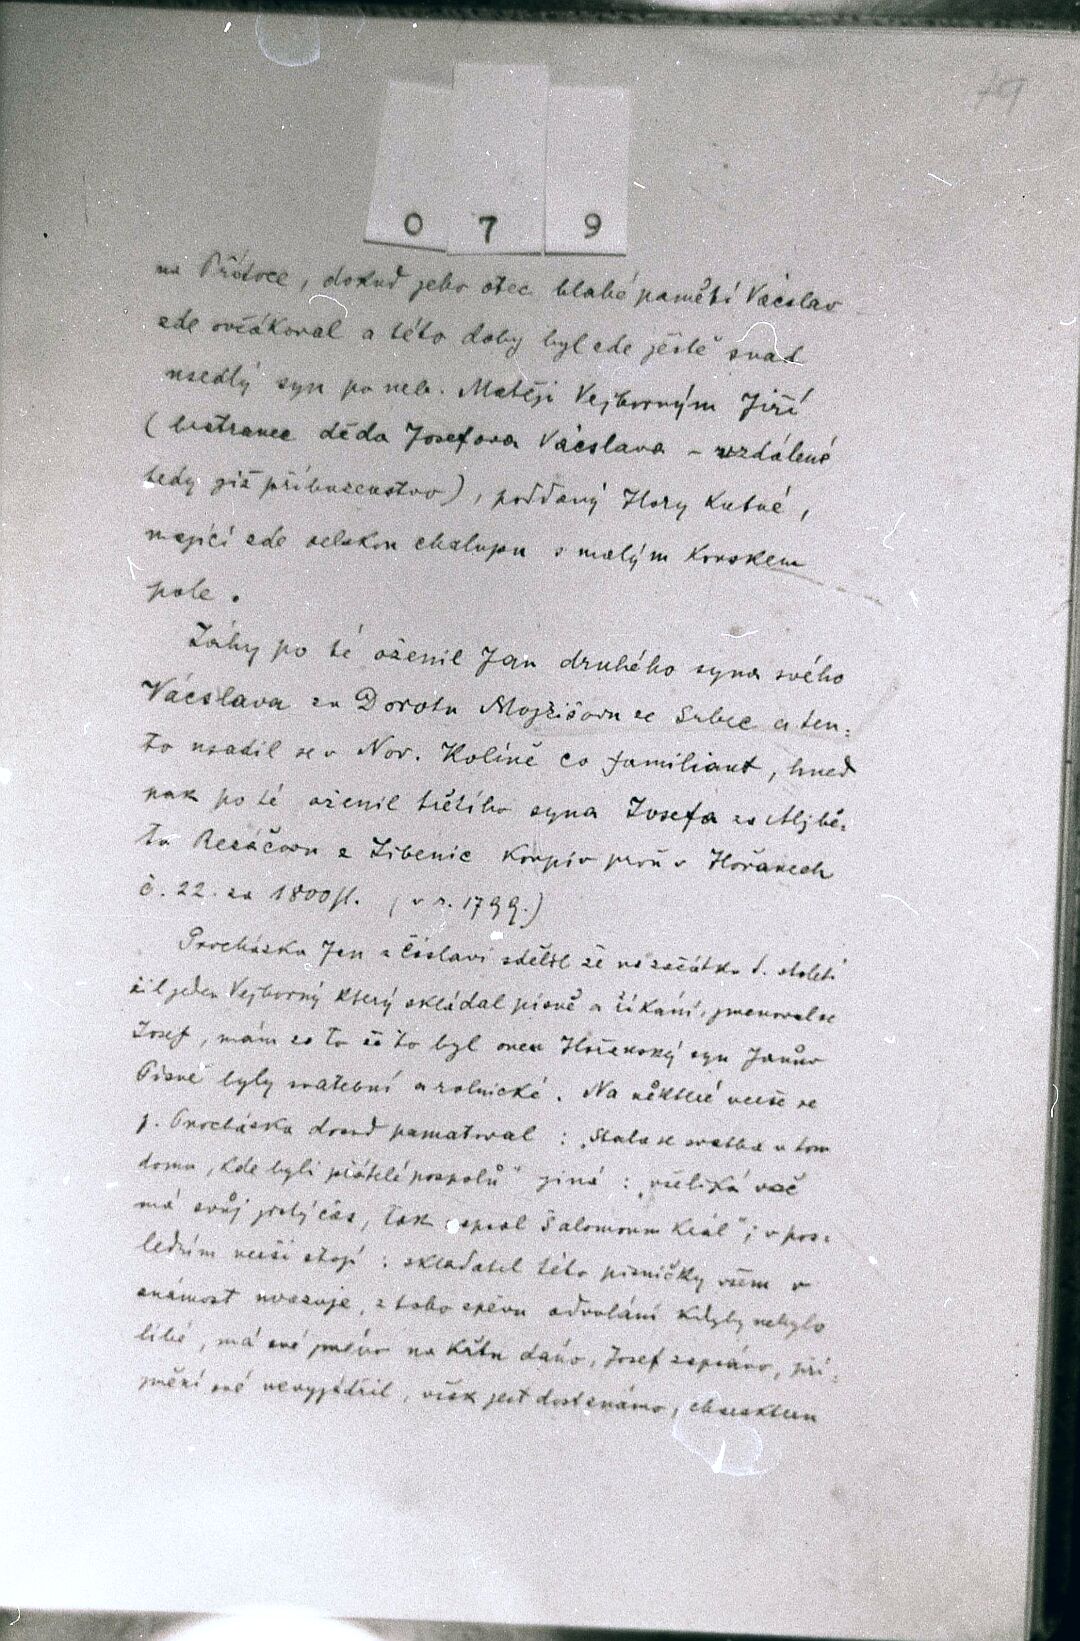 79
0 7 9
na Přítoce, dokud jeho otec blahé paměti Vácslav
zde ovčákoval a této doby byl zde ještě snad
usedlý syn po neb. Matěji Vejborným Jiří
(bratranec děda Josefova Vácslava – vzdálené
tedy již příbuzenstvo), poddaný Hory Kutné,
mající zde selskou chalupu s malým kouskem
pole.
Záhy po té oženil Jan druhého syna svého
Vácslava za Dorotu ze Srbec a ten:
to usadil se v Nov. Kolíně co familiant, hned
pak po té oženil třetího syna Josefa za Aljbě:
tu Řezáčovu z Libenic koupiv proň v Hořanech
č. 22. za 1800 fl. (v r. 1799.)
Procházka Jan z Čáslavi sdělil že na začátku t. století
žil jeden Vejborný který skládal písně a říkání, jmenoval se
Josef, mám za to že to byl onen Hořanský syn Janův
Písně byly svatební a rolnické. Na některé verše se
p. Procházka dosud pamatoval: „Stala se svatba v tom
domu, kde byli přátelé pospolu" jiná: „všeliká věc
má svůj jistý čas, tak Šalomoun král"; v pos:
ledním verši stojí: skladatel této písničky všem v
známost uvozuje, z toho zpěvu odvolání kdyby nebylo
libé, má své jméno na křtu dáno, Josef zapsáno, pří:
jmění své nevyjádřil, však jest dost známo, charakteru